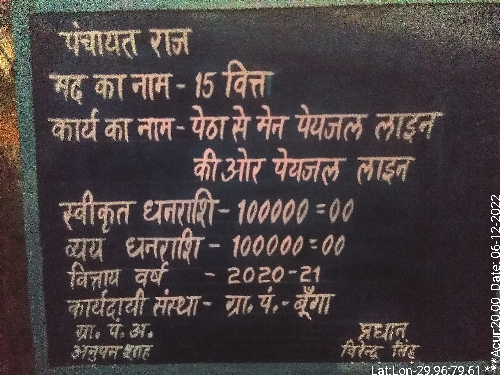 पंचायत राज
मद का नाम - 15 वित्त
कार्य का नाम - पेठा से मेन पेयजल लाइन
की ओर पेयजल लाइन
स्वीकृत धनराशि - 100000=00
व्यय धनराशि - 100000=00
वित्तीय वर्ष - 2020-21
कार्यदायी संस्था - ग्रा. पं. - बूँगा
ग्रा. पं. अ.
प्रधान
अनुपम शाह
विरेन्द्र सिंह
Lat:Lon-29.96:79.61
Date: 06-12-2022